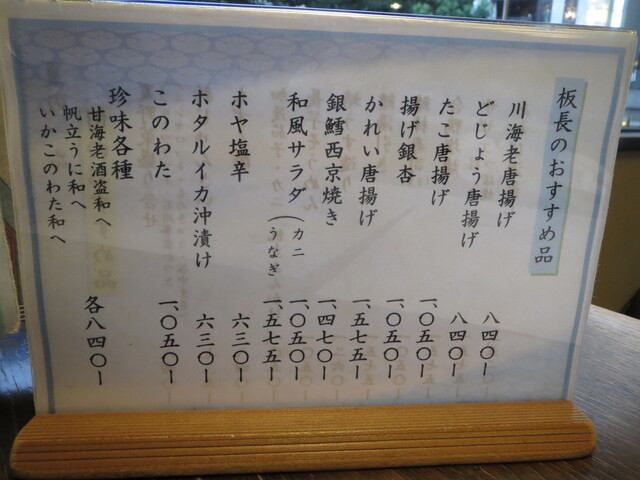 板長のおすすめ品
川海老唐揚げ 八四〇ー
どじょう唐揚げ 八四〇ー
たこ唐揚げ 一、〇五〇ー
揚げ銀杏 一、〇五〇ー
かれい唐揚げ 一、五七五ー
銀鱈西京焼き 一、四七〇ー
和風サラダ(カニ 一、〇五〇ー
うなぎ 一、五七五ー
ホヤ塩辛 六三〇ー
ホタルイカ沖漬け 六三〇ー
このわた 一、〇五〇ー
珍味各種
甘海老酒盗和へ 各八四〇ー
帆立うに和へ
いかこのわた和へ